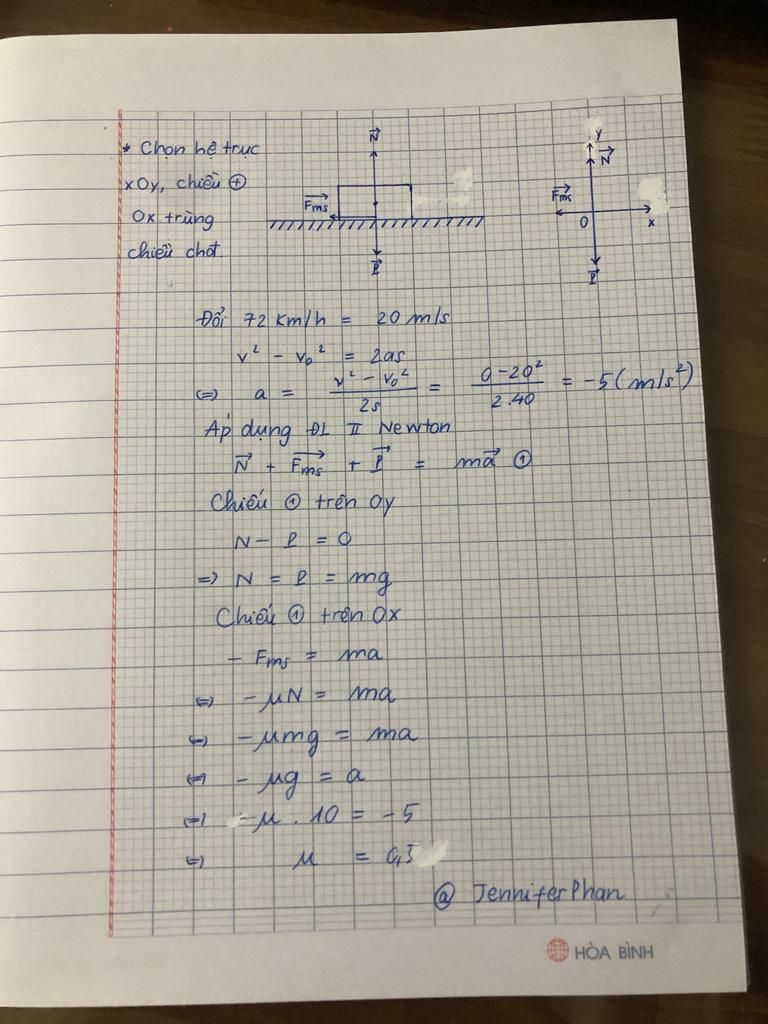 * Chọn hệ trục
xOy, chiều ⊕
Ox trùng
chiều chđ.
N
Fms
P
y
N
Fms
O
x
P
Đổi 72 Km/h = 20 m/s
v² - v₀² = 2as
⇔ a = (v² - v₀²)/2s = (0-20²)/2.40 = -5 (m/s²)
Áp dụng ĐL II Newton
N⃗ + Fms⃗ + P⃗ = ma⃗ ①
Chiếu ① trên Oy
N - P = 0
⇒ N = P = mg
Chiếu ① trên Ox
- Fms = ma
⇔ -μN = ma
⇔ -μmg = ma
⇔ -μg = a
⇔ -μ . 10 = -5
⇔ μ = 0,5
@ JenniferPhan
HÒA BÌNH